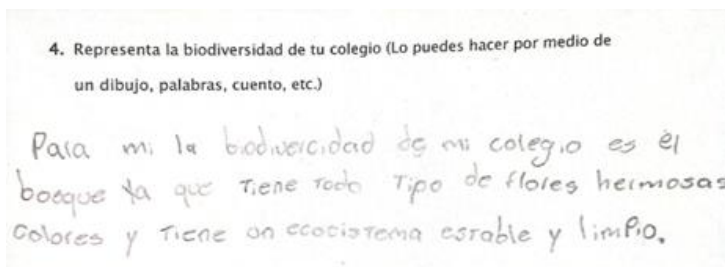 4. Representa la biodiversidad de tu colegio (Lo puedes hacer por medio de
un dibujo, palabras, cuento, etc.)
Para mi la biodivercidad de mi colegio es el
bosque ya que Tiene Todo Tipo de flores hermosas
Colores y Tiene un ecocistema estable y limpio.